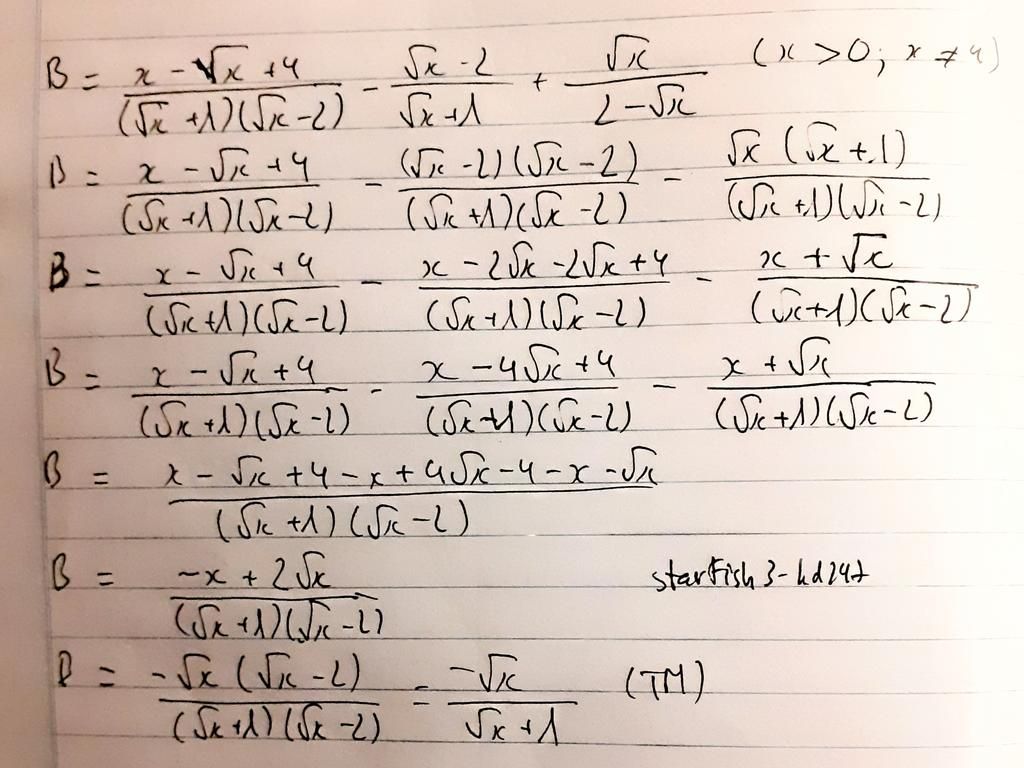 B = (x - √x + 4)/((√x + 1)(√x - 2)) - (√x - 2)/(√x + 1) + √x/(2 - √x) (x > 0; x ≠ 4)
B = (x - √x + 4)/((√x + 1)(√x - 2)) - ((√x - 2)(√x - 2))/((√x + 1)(√x - 2)) - (√x (√x + 1))/((√x + 1)(√x - 2))
B = (x - √x + 4)/((√x + 1)(√x - 2)) - (x - 2√x - 2√x + 4)/((√x + 1)(√x - 2)) - (x + √x)/((√x + 1)(√x - 2))
B = (x - √x + 4)/((√x + 1)(√x - 2)) - (x - 4√x + 4)/((√x + 1)(√x - 2)) - (x + √x)/((√x + 1)(√x - 2))
B = (x - √x + 4 - x + 4√x - 4 - x - √x)/((√x + 1)(√x - 2))
B = (-x + 2√x)/((√x + 1)(√x - 2))
B = (-√x (√x - 2))/((√x + 1)(√x - 2)) = (-√x)/(√x + 1) (TM)